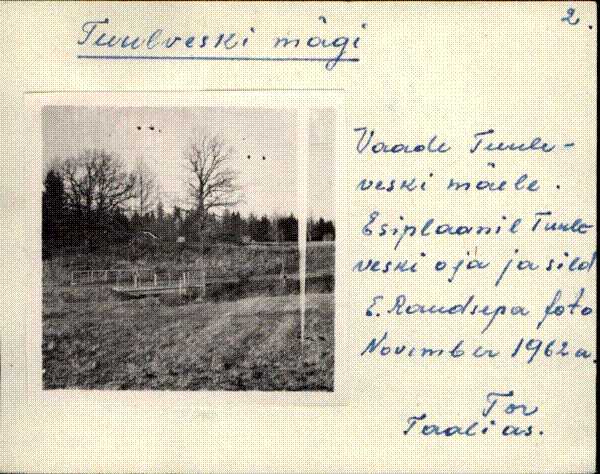 2.
Tuulveski mägi
Vaade Tuule-
veski mäele.
Esiplaanil Tuule
veski oja ja sild
E. Raudsepa foto
November 1962 a.
Tor
Taalias.